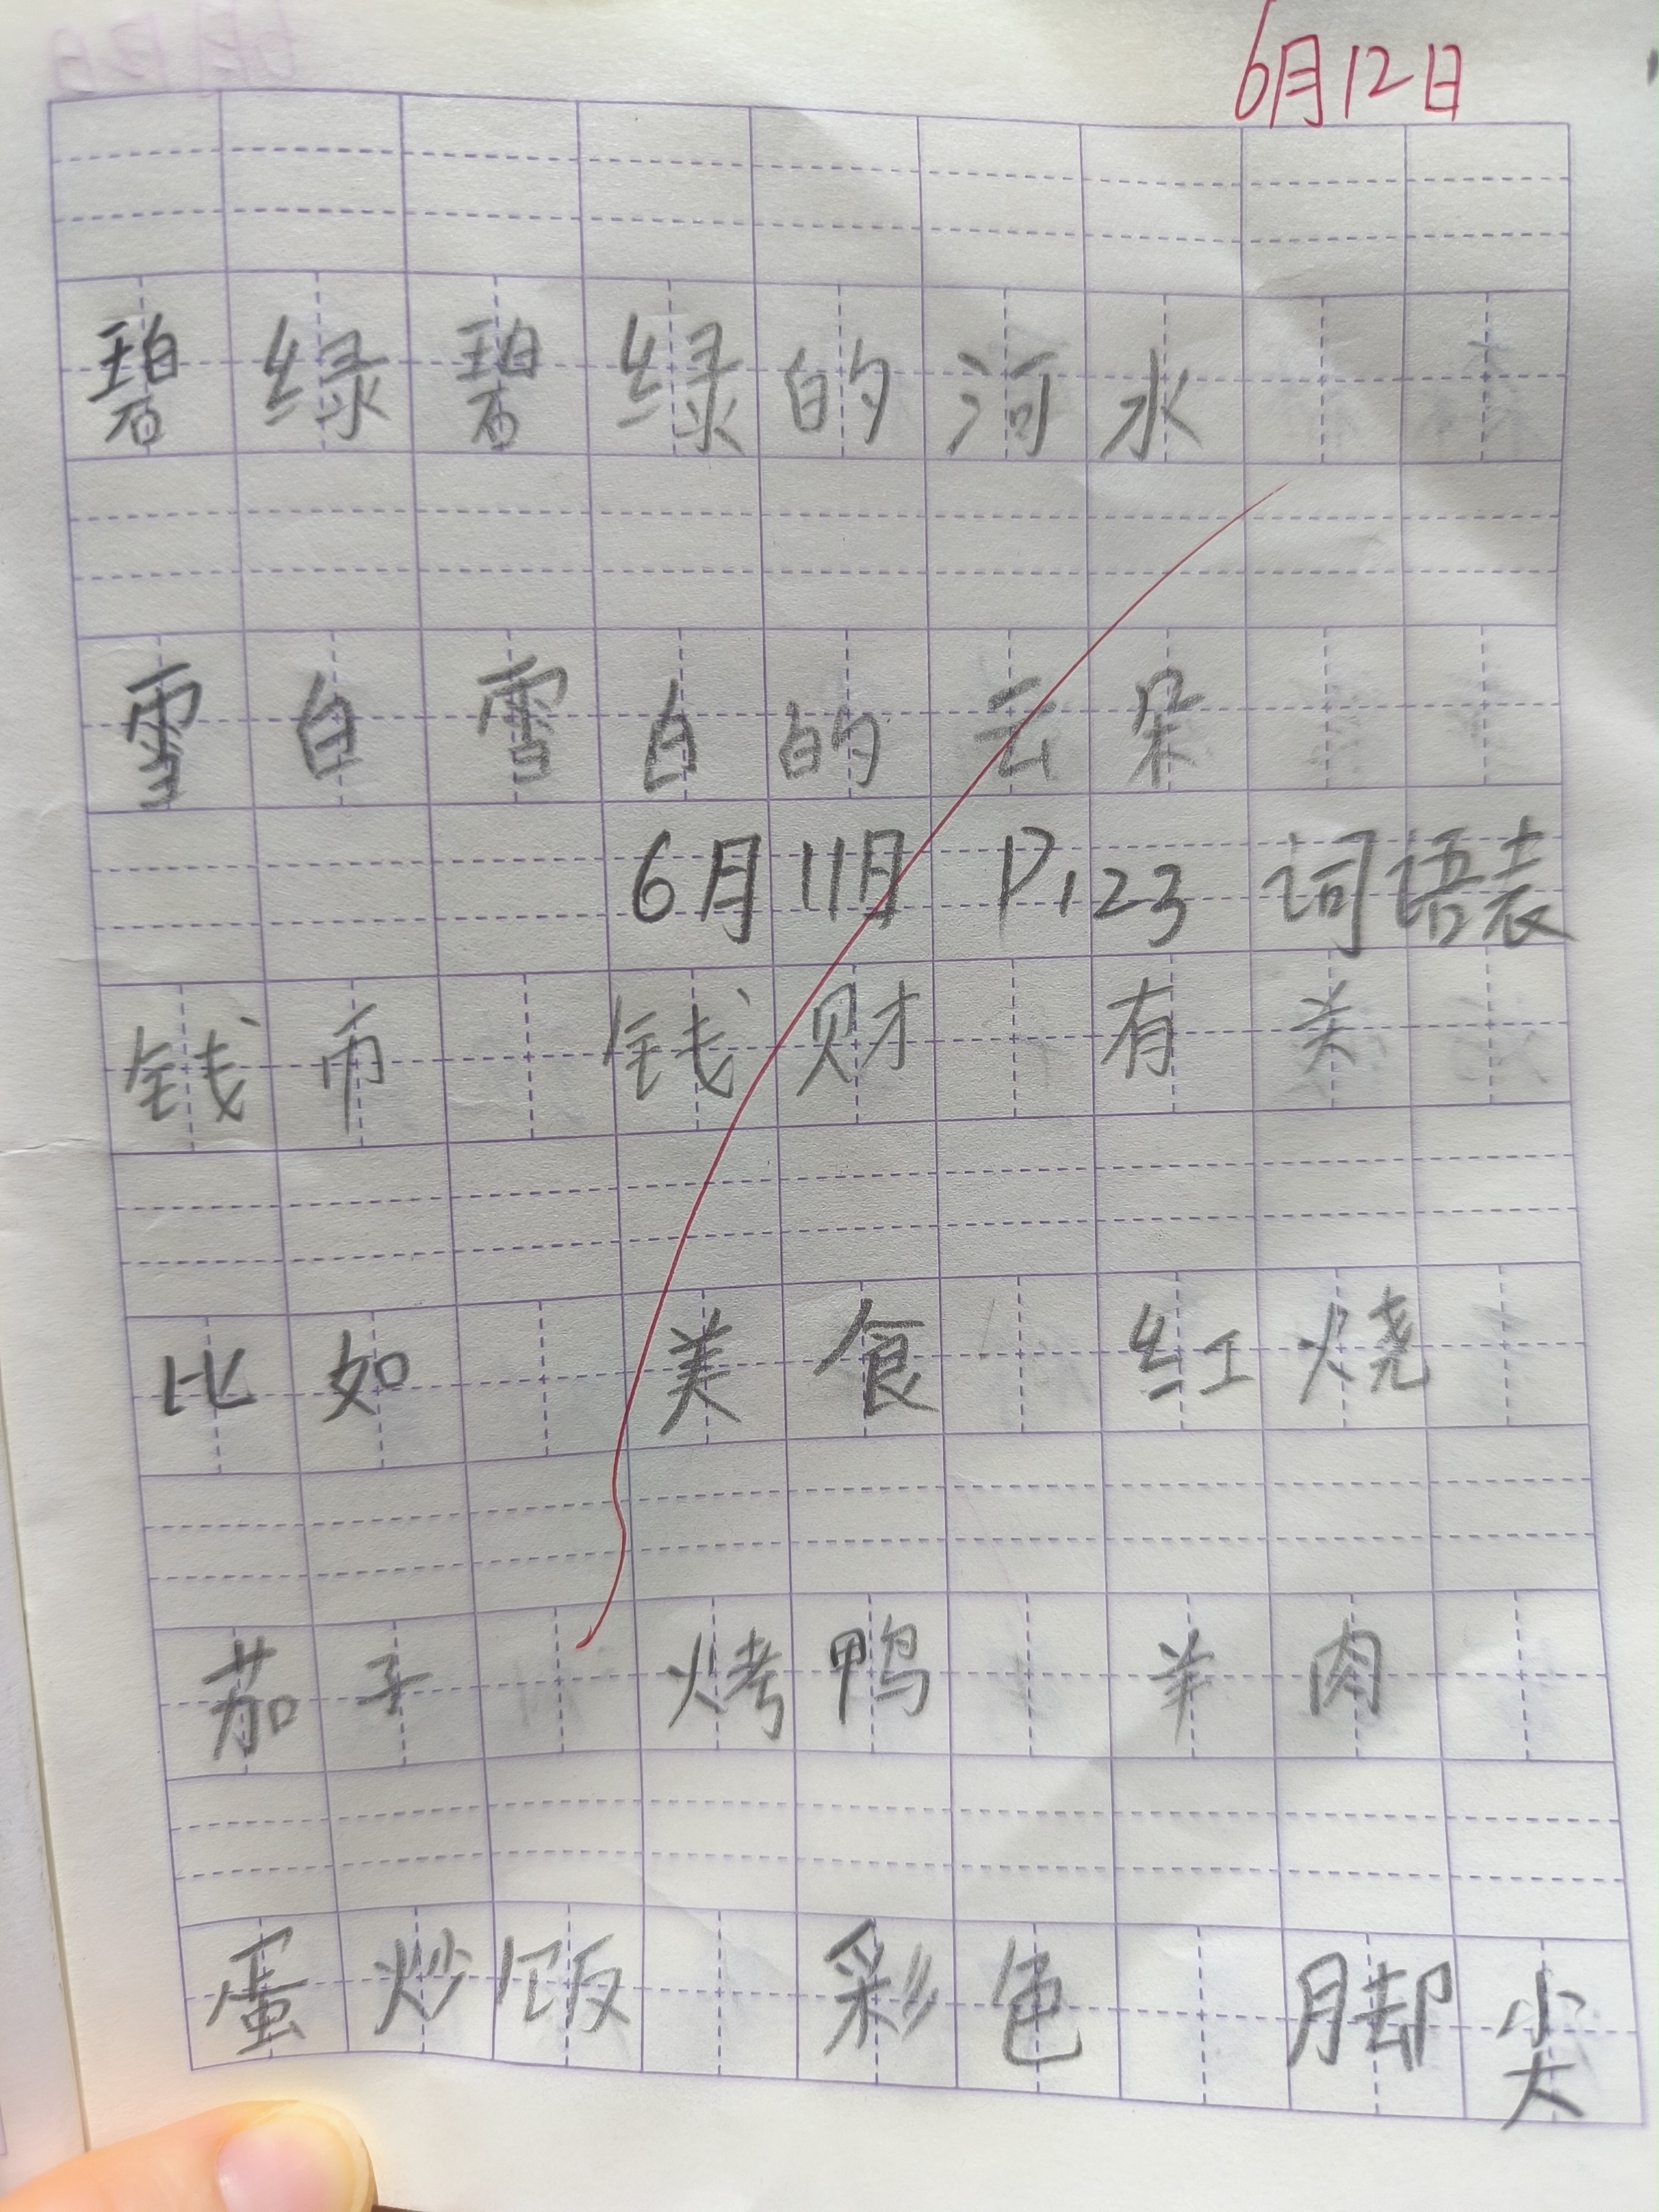 6月12日
碧绿碧绿的河水
雪白雪白的云朵
6月11日 P123 词语表
钱币 钱财 有关
比如 美食 红烧
茄子 烤鸭 羊肉
蛋炒饭 彩色 脚尖